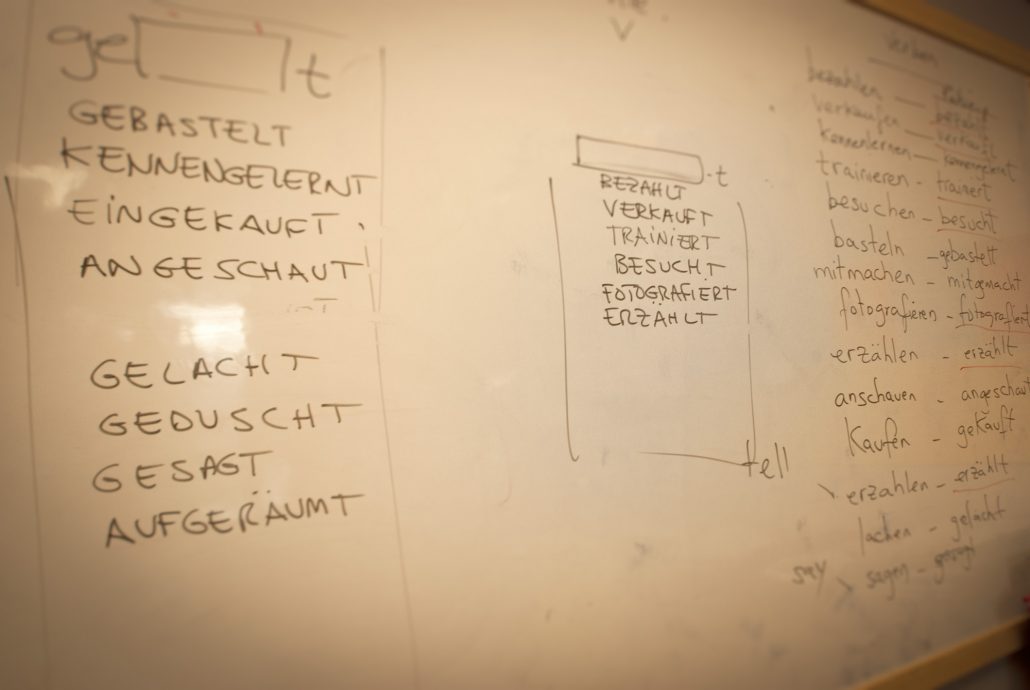 ge t
GEBASTELT
KENNENGELERNT
EINGEKAUFT
ANGESCHAUT
GELACHT
GEDUSCHT
GESAGT
AUFGERÄUMT
-t
BEZAHLT
VERKAUFT
TRAINIERT
BESUCHT
FOTOGRAFIERT
ERZÄHLT
tell
verben
bezahlen — bezahlt
verkaufen — verkauft
kennenlernen — kennengelernt
trainieren - trainert
besuchen - besucht
basteln - gebastelt
mitmachen - mitgemacht
fotografieren - fotografiert
erzählen - erzählt
anschauen - angeschaut
Kaufen - gekauft
erzahlen - erzählt
lachen - gelacht
say sagen - gesagt